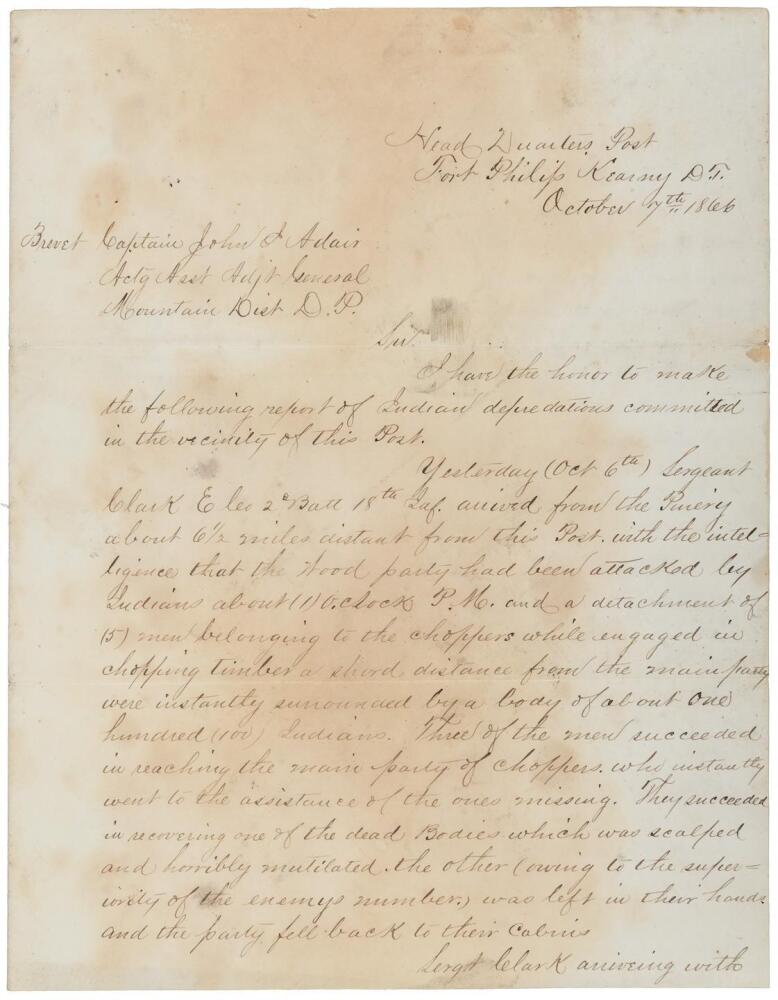 Head Quarters Post
Fort Philip Kearny D.T.
October 7th 1866
Brevet Captain John I Adair
Actg Asst Adjt General
Mountain Dist D.P.
Sir.
I have the honor to make
the following report of Indian depredations committed
in the vicinity of this Post.
Yesterday (Oct 6th) Sergeant
Clark E Co 2d Batt 18th Inf. arived from the Pinery
about 6 1/2 miles distant from this Post. with the intel=
ligence that the Wood party had been attacked by
Indians about (1) O.clock P.M. and a detachment of
(5) men belonging to the choppers while engaged in
chopping timber a short distance from the main party
were instantly surrounded by a body of about one
hundred (100) Indians. Three of the men succeeded
in reaching the main party of choppers. who instantly
went to the assistance of the ones missing. They succeeded
in recovering one of the dead Bodies which was scalped
and horribly mutilated. the other (owing to the super=
iority of the enemys number.) was left in their hands
and the party fell back to their Cabins
Sergt Clark ariveing with